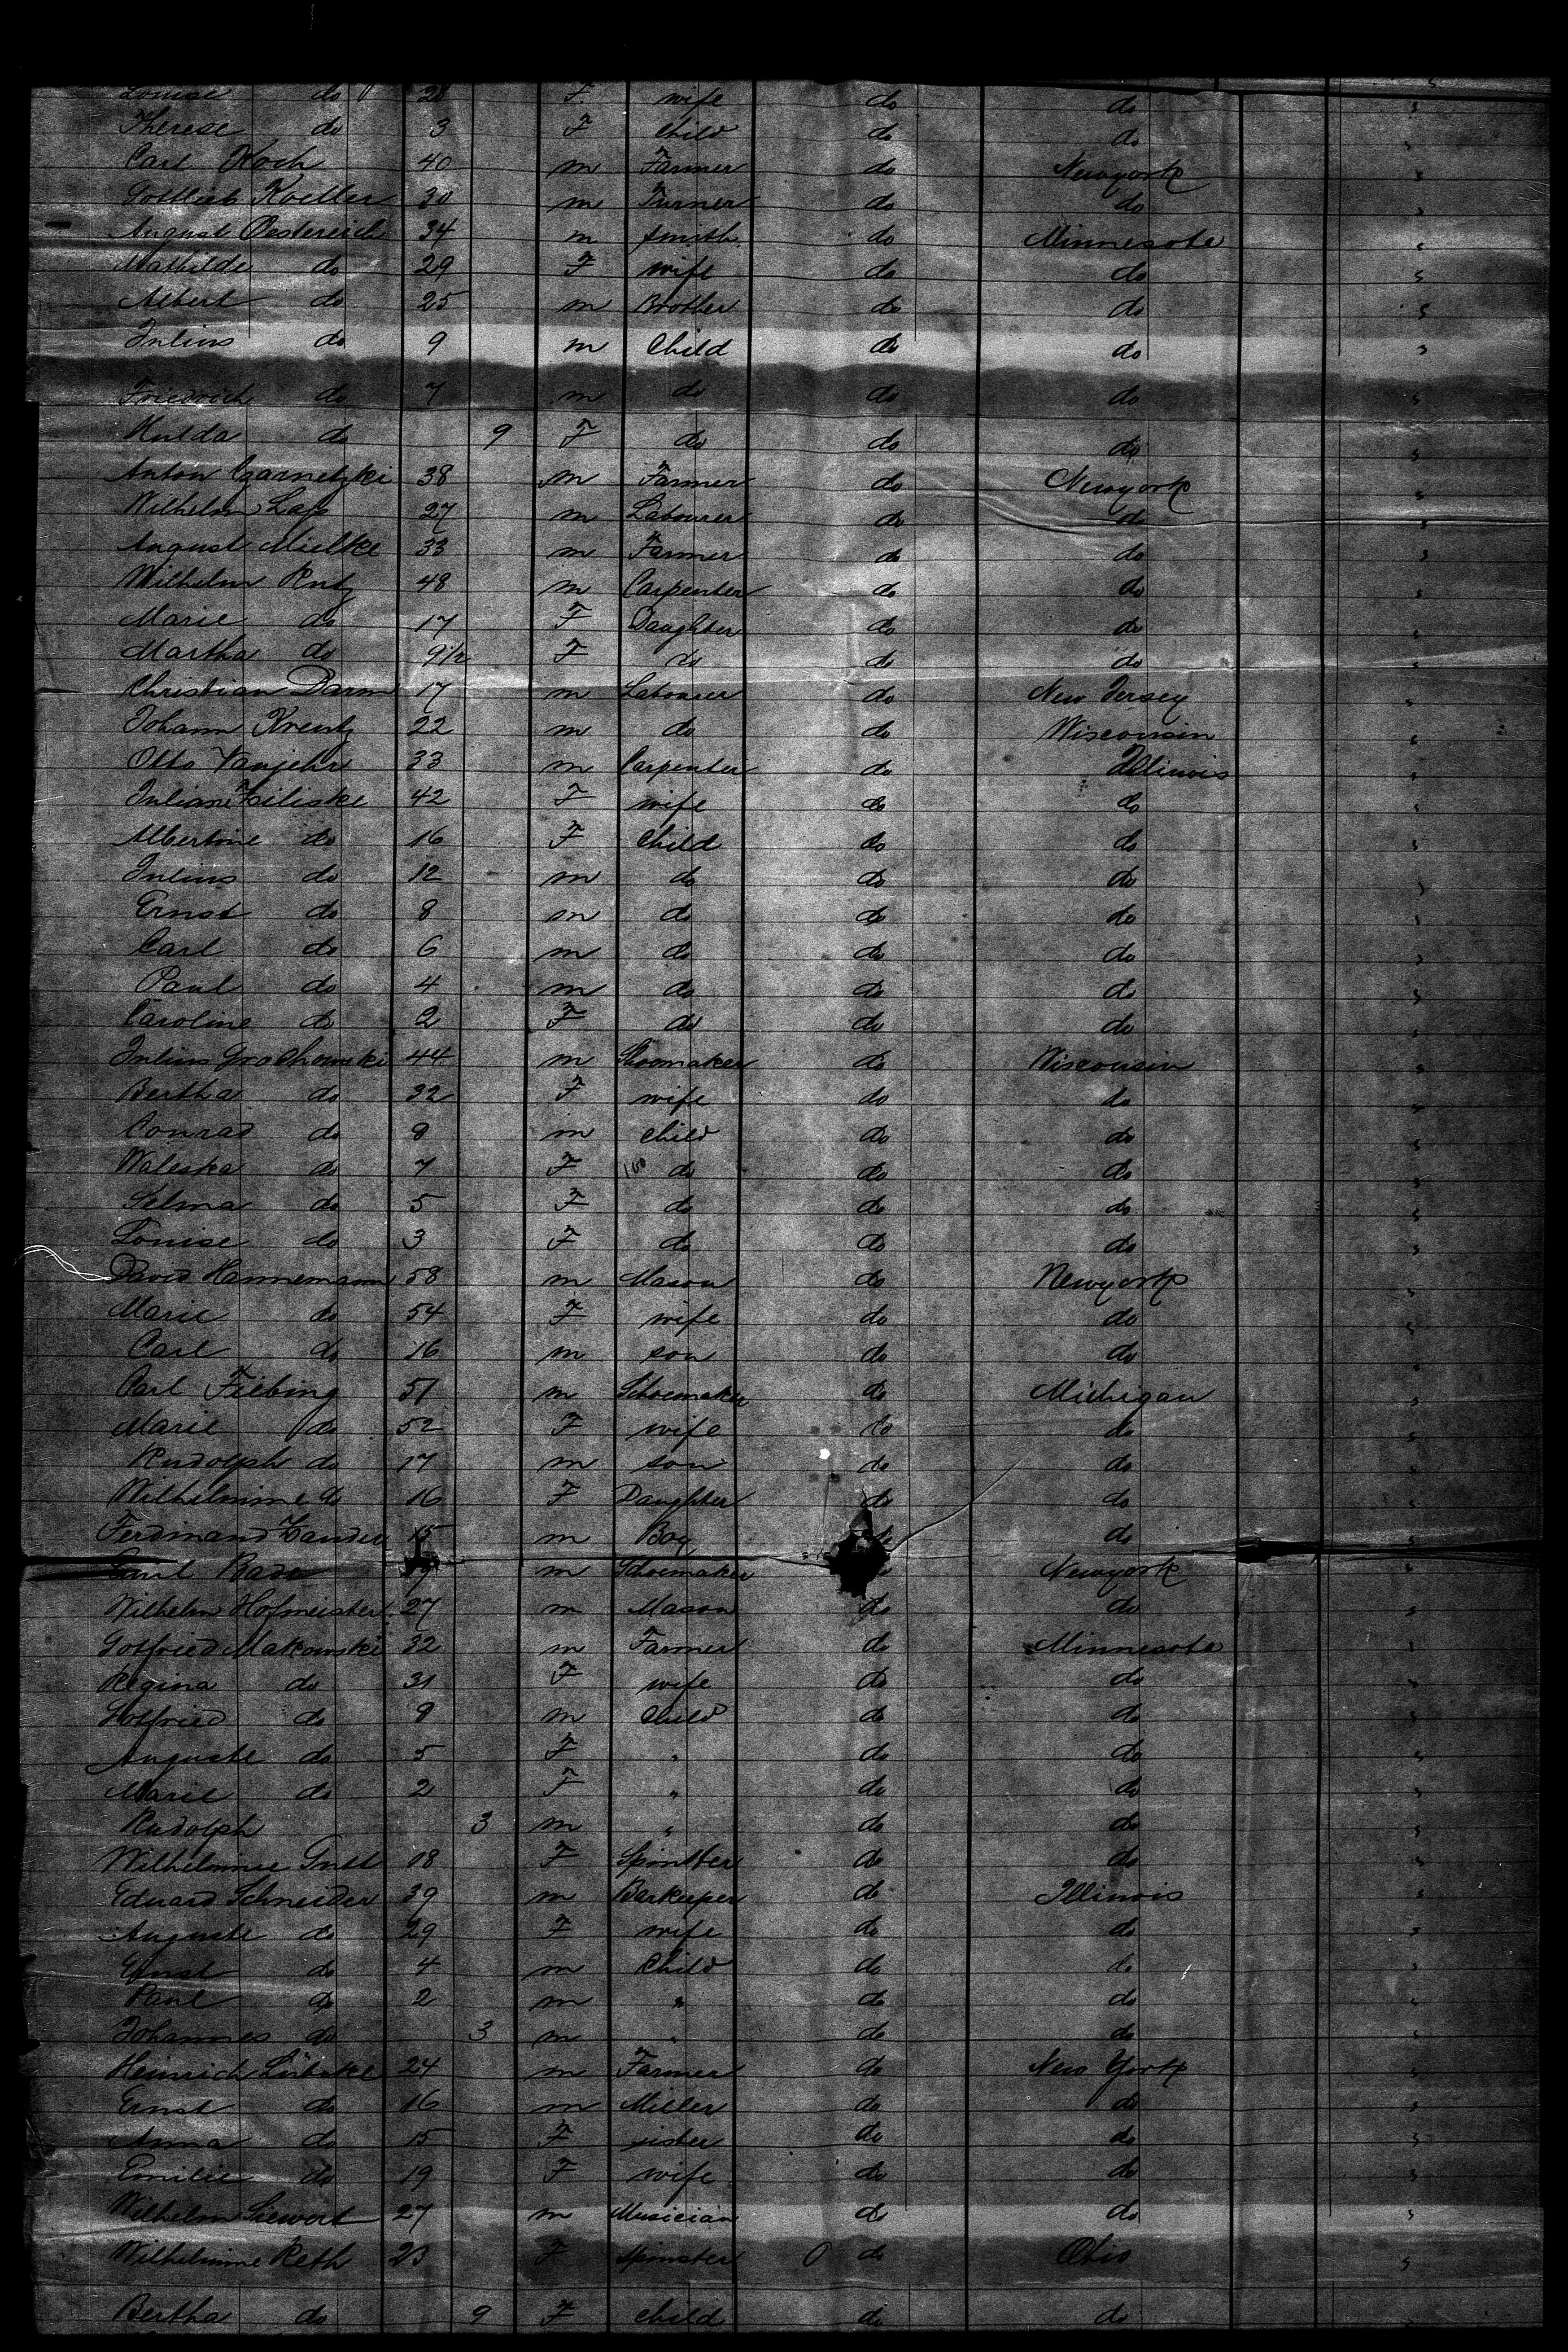 Louise do 28 F. wife do do
Therese do 3 F Child do do
Carl Koch 40 m Farmer do Newyork
Gottlieb Koeller 30 m Turner do do
August Oestereich 34 m smith do Minnesota
Mathilde do 29 F wife do do
Albert do 25 m Brother do do
Julius do 9 m Child do do
Friedrich do 7 m do do do
Hulda do 9 F do do do
Anton Czarnetzki 38 m Farmer do Newyork
Wilhelm 27 m Labourer do do
August Mielke 33 m Farmer do do
Wilhelm 48 m Carpenter do do
Marie do 17 F Daughter do do
Martha do 9½ F do do do
Christian Darm 17 m Labourer do New Jersey
Johann Kreutz 22 m do do Wisconsin
Otto Vanjehr 33 m Carpenter do Illinois
Juliane Ziliske 42 F wife do do
Albertine do 16 F Child do do
Julius do 12 m do do do
Ernst do 8 m do do do
Carl do 6 m do do do
Paul do 4 m do do do
Caroline do 2 F do do do
Julius Grochowski 44 m Shoemaker do Wisconsin
Bertha do 32 F wife do do
Conrad do 8 m child do do
Waleska do 7 F do do do
Selma do 5 F do do do
Louise do 3 F do do do
David Hannemann 58 m Mason do Newyork
Marie do 54 F wife do do
Carl do 16 m son do do
Carl Fiebing 51 m Schoemaker do Michigan
Marie do 52 F wife do do
Rudolph do 17 m son do do
Wilhelmine do 16 F Daughter do do
Ferdinand Zander 15 m Boy do do
m Schoemaker Newyork
Wilhelm Hofmeister 27 m Mason do do
Gottfried Makowski 32 m Farmer do Minnesota
Regina do 31 F wife do do
Gottfried do 9 m Child do do
Auguste do 5 F " do do
Marie do 2 F " do do
Rudolph 3 m " do do
Wilhelmine 18 F Spinster do do
Eduard Schneider 39 m Barkeeper do Illinois
Auguste do 29 F wife do do
Ernst do 4 m Child do do
Paul do 2 m " do do
Johannes do 3 m " do do
Heinrich Lübcke 24 m Farmer do New York
Ernst do 16 m Miller do do
Anna do 15 F sister do do
Emilie do 19 F wife do do
Wilhelm Siewert 27 m Musician do do
Wilhelmine Reth 23 F Spinster 0 do Ohio
Bertha do 9 F child do do